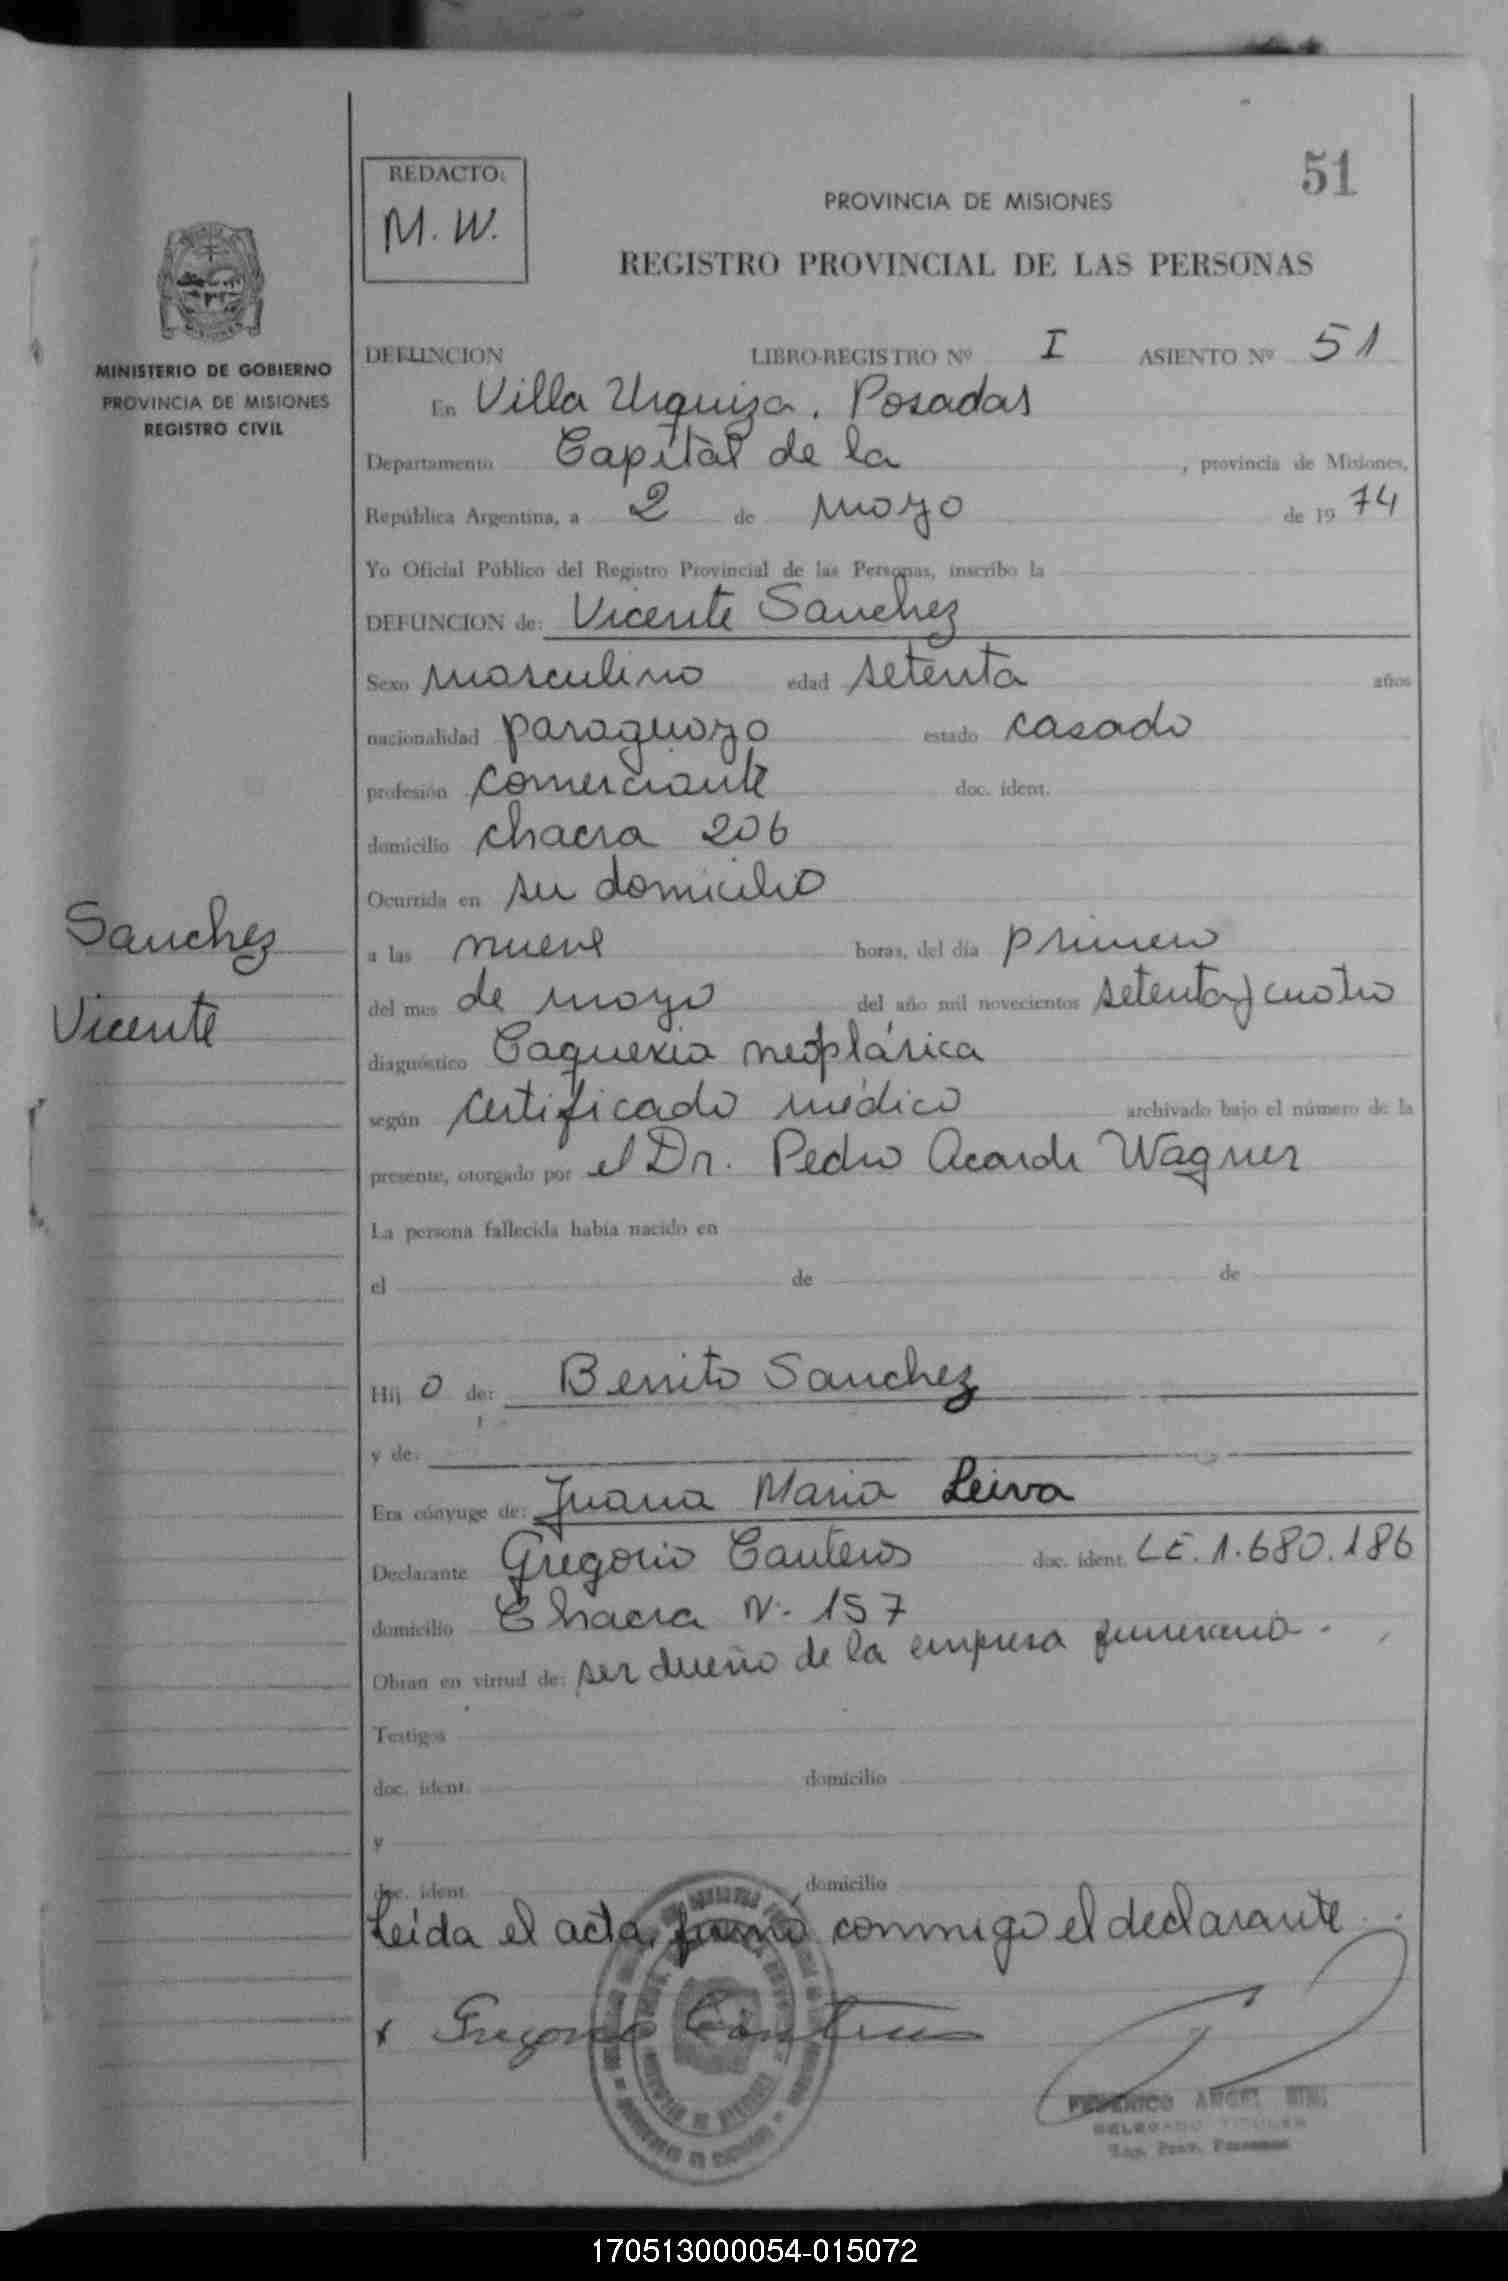 51
REDACTO:
M. W.
PROVINCIA DE MISIONES
REGISTRO PROVINCIAL DE LAS PERSONAS
MINISTERIO DE GOBIERNO
PROVINCIA DE MISIONES
REGISTRO CIVIL
DEFUNCION LIBRO-REGISTRO Nº I ASIENTO Nº 51
En Villa Urquiza. Posadas
Departamento Capital de la , provincia de Misiones,
República Argentina, a 2 de mayo de 19 74
Yo Oficial Público del Registro Provincial de las Personas, inscribo la
DEFUNCION de: Vicente Sanchez
Sexo masculino edad setenta años
nacionalidad paraguayo estado casado
profesión comerciante doc. ident.
domicilio chacra 206
Ocurrida en su domicilio
Sanchez
Vicente
a las nueve horas, del día primero
del mes de mayo del año mil novecientos setenta y cuatro
diagnóstico Caquexia neoplásica
según certificado médico archivado bajo el número de la
presente, otorgado por el Dr. Pedro Acardi Wagner
La persona fallecida había nacido en
el de de
Hij o de: Benito Sanchez
y de:
Era cónyuge de: Juana Maria Leiva
Declarante Gregorio Canteros doc. ident. L.E. 1.680.186
domicilio Chacra N.- 157
Obran en virtud de: ser dueño de la empresa funeraria.
Testigos
doc. ident. domicilio
y
doc. ident. domicilio
Leida el acta, firmó conmigo el declarante
x Gregorio Canteros
FEDERICO ANGEL
DELEGADO TITULAR
Reg. Prov. Personas
170513000054-015072